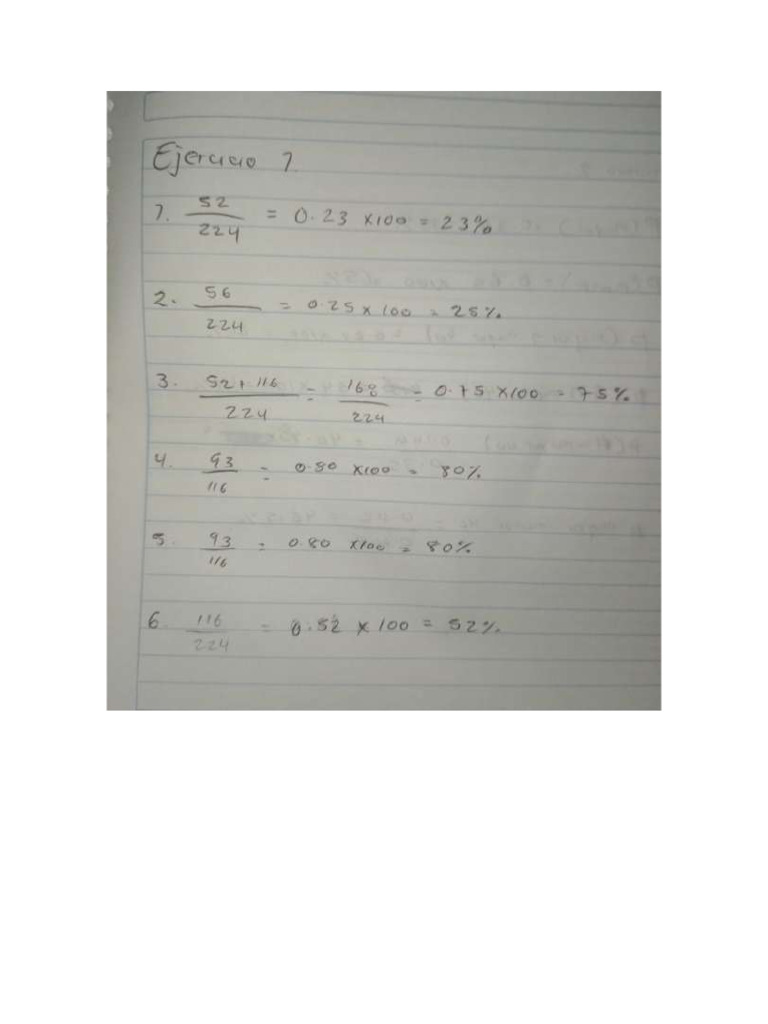 Ejercicio 1
1. 52/224 = 0.23 x100 = 23%
2. 56/224 = 0.25 x 100 = 25%
3. 52+116/224 = 168/224 = 0.75 x100 = 75%
4. 93/116 = 0.80 x100 = 80%
5. 93/116 = 0.80 x100 = 80%
6 116/224 = 0.52 x 100 = 52%